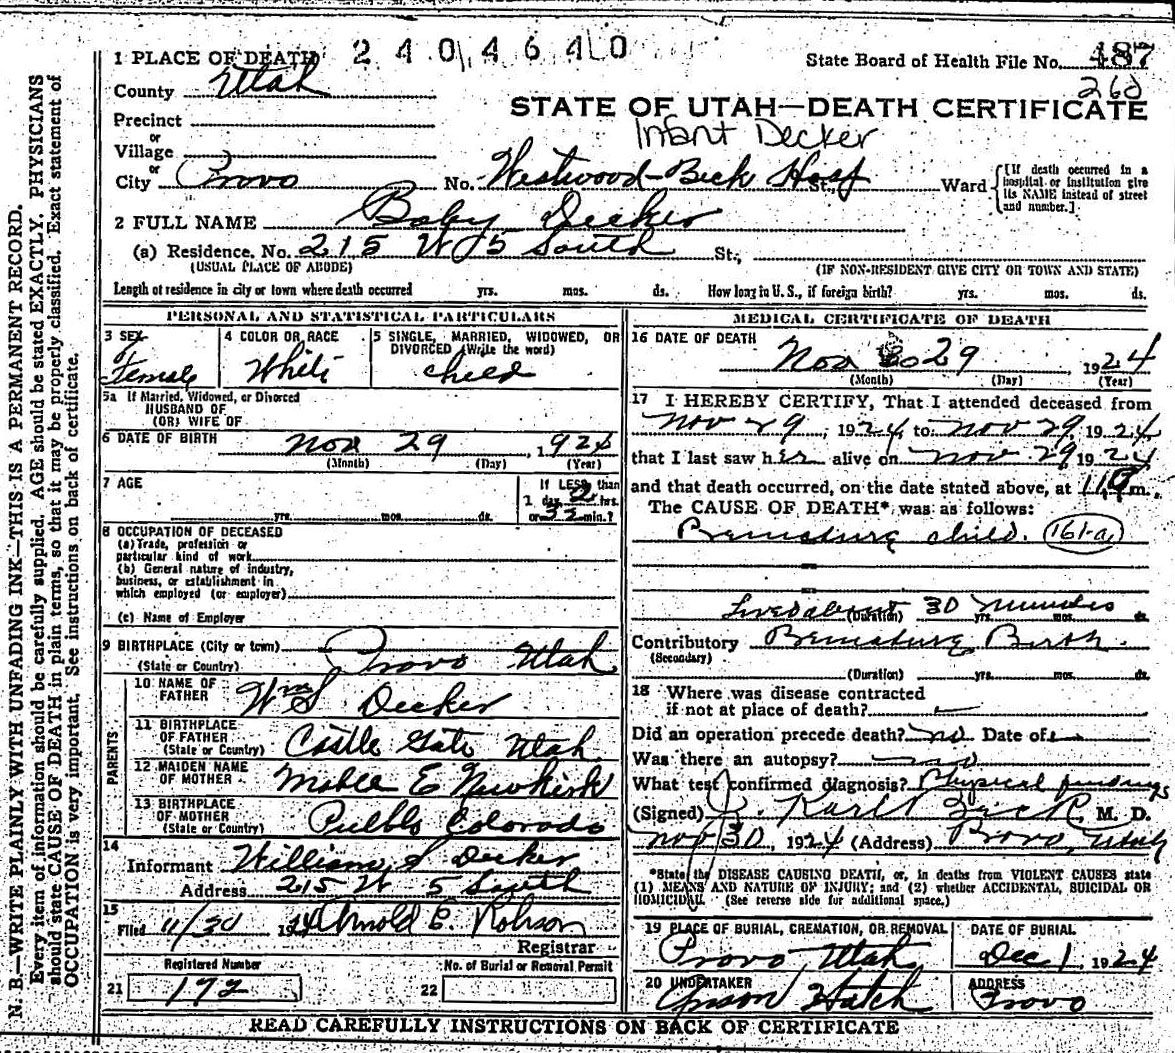 N. B.—WRITE PLAINLY WITH UNFADING INK—THIS IS A PERMANENT RECORD.
Every item of information should be carefully supplied. AGE should be stated EXACTLY. PHYSICIANS
should state CAUSE OF DEATH in plain terms, so that it may be properly classified. Exact statement of
OCCUPATION is very important. See instructions on back of certificate.
1 PLACE OF DEATH
2404640
State Board of Health File No. 487
260
County Utah
STATE OF UTAH—DEATH CERTIFICATE
Precinct
Infant Decker
or
Village
or
City Provo No. Westwood-Beck Hosp St., Ward
[If death occurred in a
hospital or institution give
its NAME instead of street
and number.]
2 FULL NAME Baby Decker
(a) Residence. No. 215 W 5 South St.,
(USUAL PLACE OF ABODE) (IF NON-RESIDENT GIVE CITY OR TOWN AND STATE)
Length of residence in city or town where death occurred yrs. mos. ds. How long in U. S., if foreign birth? yrs. mos. ds.
PERSONAL AND STATISTICAL PARTICULARS
3 SEX
Female
4 COLOR OR RACE
White
5 SINGLE, MARRIED, WIDOWED, OR
DIVORCED (Write the word)
child
5a If Married, Widowed, or Divorced
HUSBAND OF
(OR) WIFE OF
6 DATE OF BIRTH Nov 29, 1924
(Month) (Day) (Year)
7 AGE
yrs. mos. ds.
If LESS than
1 day 2 hrs.
or 32 min.?
8 OCCUPATION OF DECEASED
(a) Trade, profession or
particular kind of work
(b) General nature of industry,
business, or establishment in
which employed (or employer)
(c) Name of Employer
9 BIRTHPLACE (City or town) Provo Utah
(State or Country)
PARENTS
10 NAME OF
FATHER Wm S Decker
11 BIRTHPLACE
OF FATHER
(State or Country) Castle Gate Utah
12 MAIDEN NAME
OF MOTHER Mable E Newkirk
13 BIRTHPLACE
OF MOTHER
(State or Country) Pueblo Colorado
14
Informant William S Decker
Address 215 W 5 South
15
Filed 11/30 1924 Arnold E. Robison
Registrar
Registered Number
21 172
No. of Burial or Removal Permit
22
MEDICAL CERTIFICATE OF DEATH
16 DATE OF DEATH
Nov 29 1924
(Month) (Day) (Year)
17 I HEREBY CERTIFY, That I attended deceased from
Nov 29, 1924, to Nov 29, 1924
that I last saw her alive on Nov 29 1924
and that death occurred, on the date stated above, at m.
The CAUSE OF DEATH* was as follows:
child. 161-a
Lived about 30 minutes
(Duration) yrs. mos. ds.
Contributory Birth.
(Secondary)
(Duration) yrs. mos. ds.
18 Where was disease contracted
if not at place of death?
Did an operation precede death? no Date of
Was there an autopsy? no
What test confirmed diagnosis? Physical findings
(Signed) J. Karl M. D.
Nov 30, 1924 (Address) Provo, Utah
*State the DISEASE CAUSING DEATH, or, in deaths from VIOLENT CAUSES state
(1) MEANS AND NATURE OF INJURY; and (2) whether ACCIDENTAL, SUICIDAL OR
HOMICIDAL. (See reverse side for additional space.)
19 PLACE OF BURIAL, CREMATION, OR REMOVAL
Provo, Utah
DATE OF BURIAL
Dec 1, 1924
20 UNDERTAKER
Hatch
ADDRESS
Provo
READ CAREFULLY INSTRUCTIONS ON BACK OF CERTIFICATE